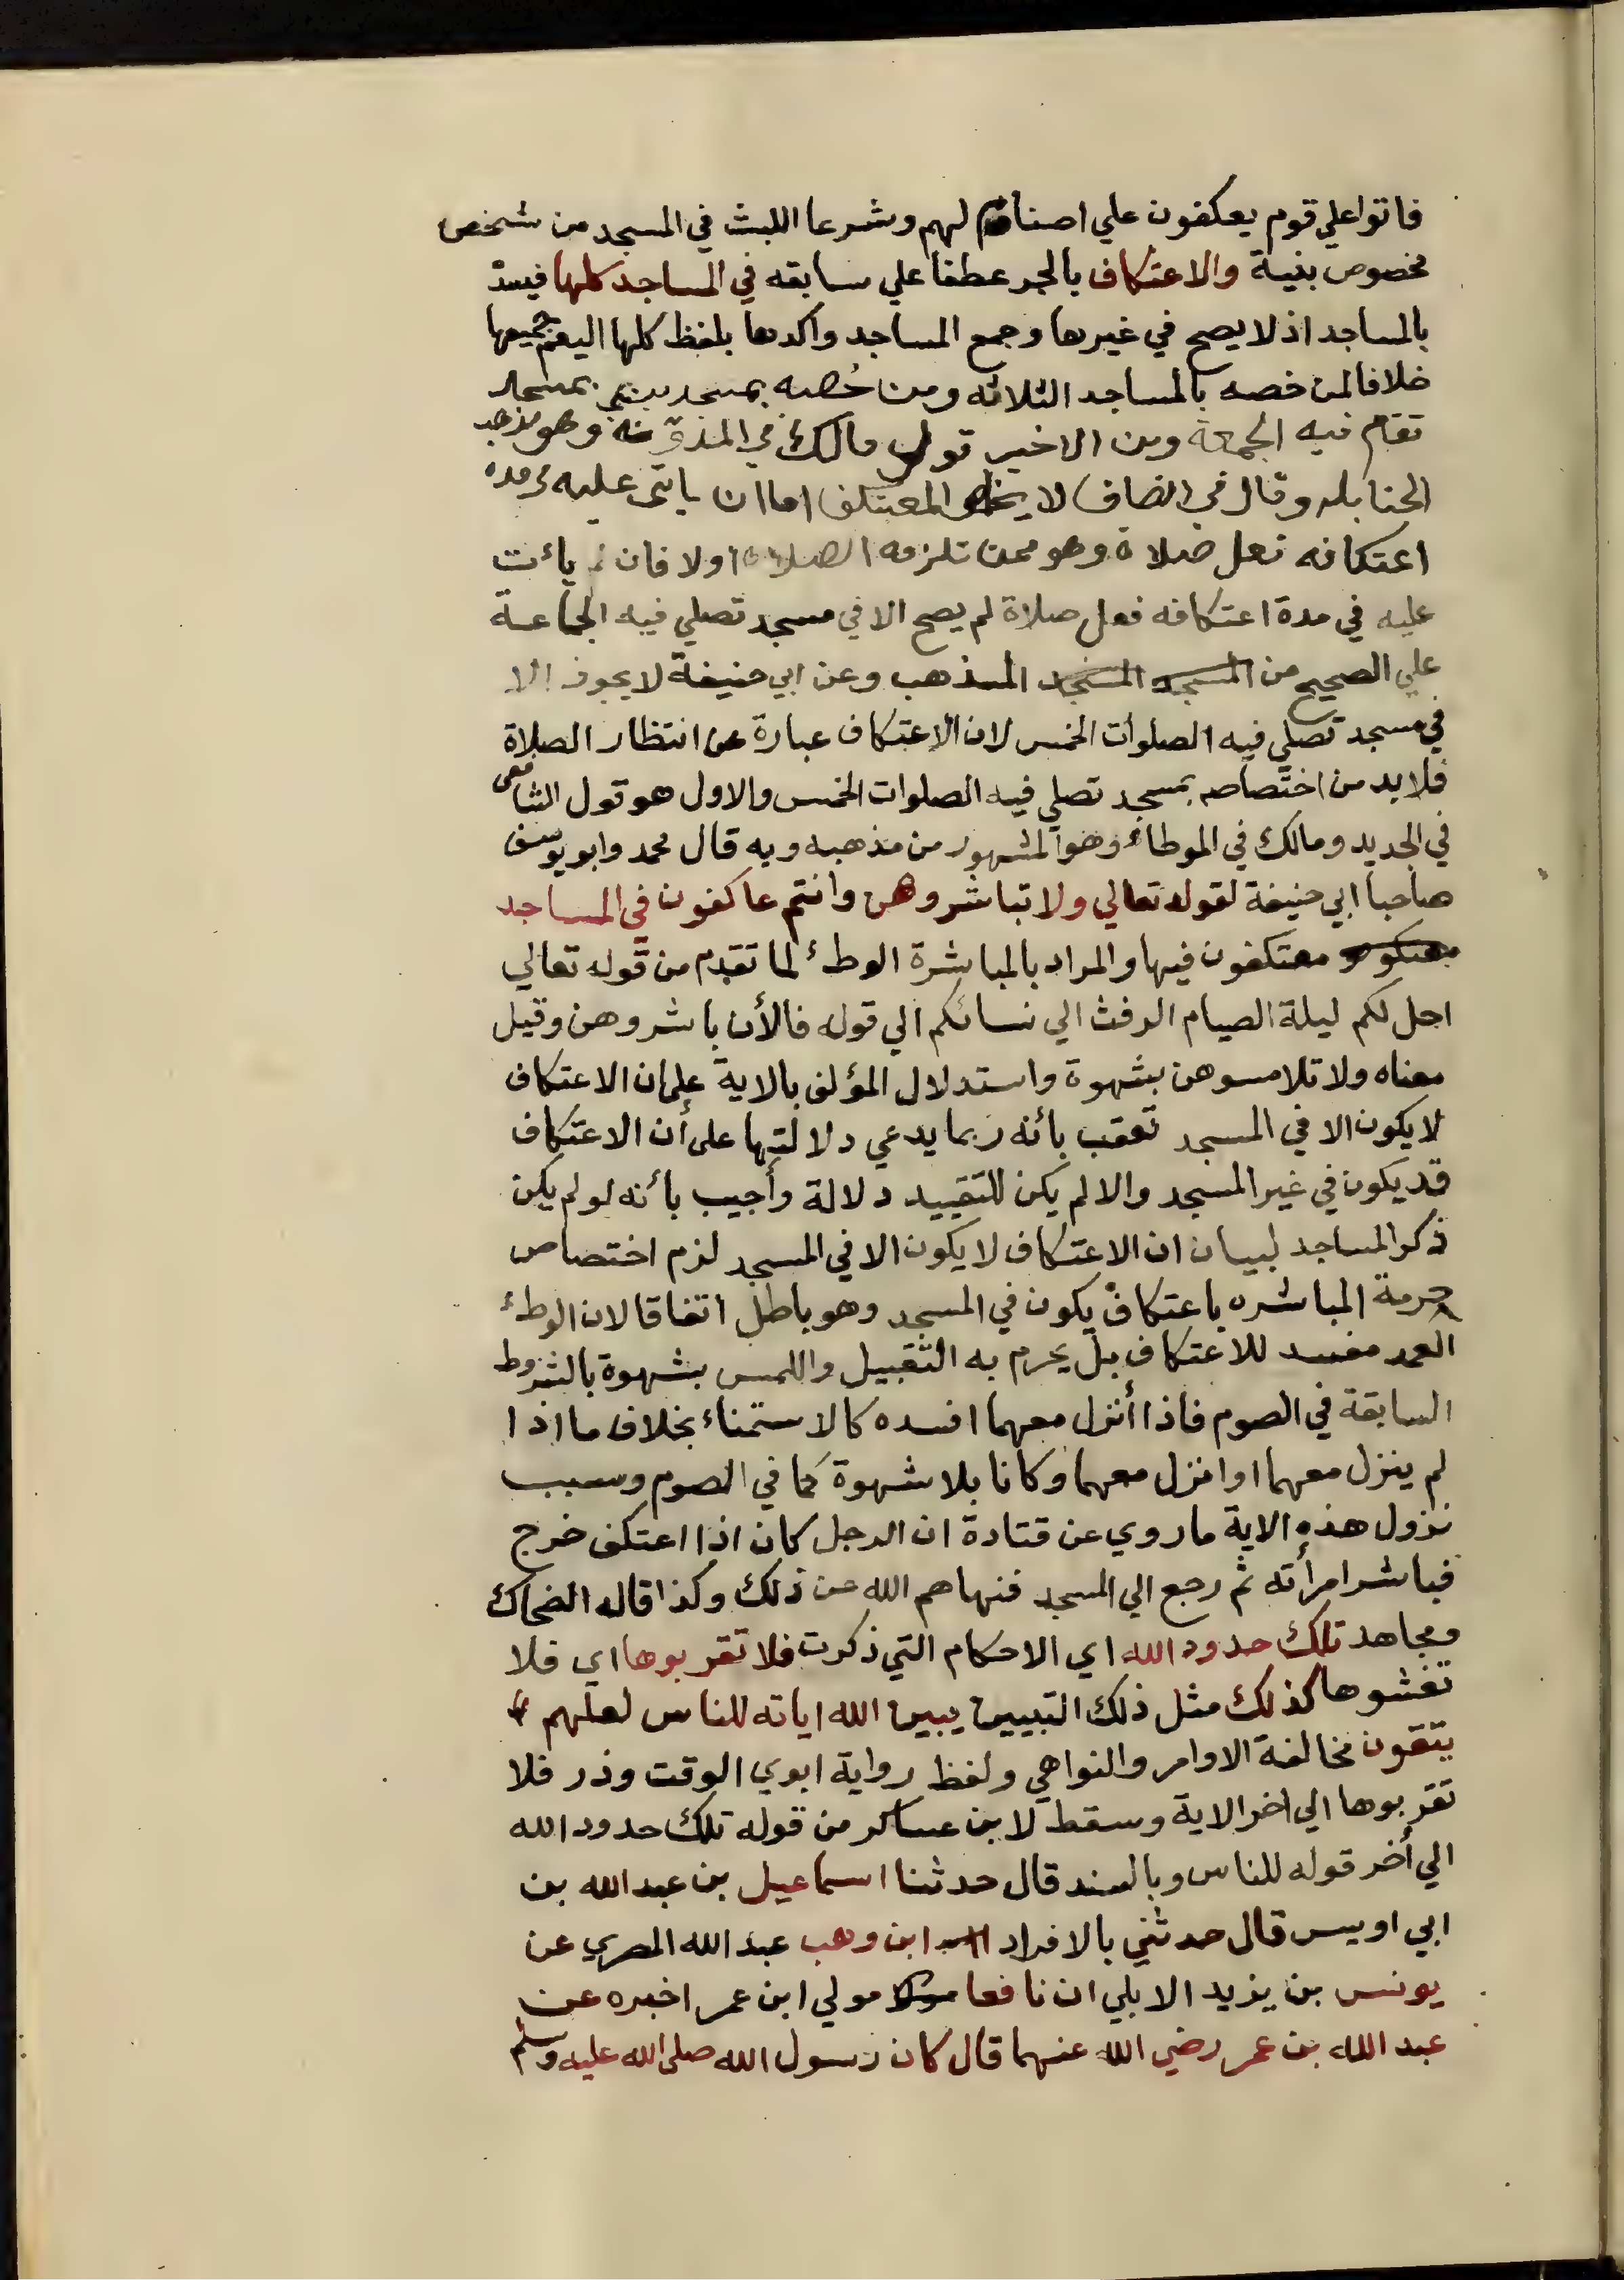 فاتوا علي قوم يعكفون علي اصنام لهم وشرعا اللبث في المسجد من شخص
مخصوص بنية والاعتكاف بالجر عطفا علي سابقه في المساجد كلها فيد
بالمساجد اذ لا يصح في غيرها وجمع المساجد واكدها بلفظ كلها ليعم جميعها
خلافا لمن خصه بالمساجد الثلاثه ومن خصه بمسجد بمسجد
تقام فيه الجمعة وهن الاخير قول مالك في المدونه وهو مذهب
الحنابله وقال في الانصاف لا يخلو المعتكف اما ان ياتي عليه في مده
اعتكافه فعل صلاة وهو ممن تلزمه الصلاة او لا فان لم يائت
عليه في مدة اعتكافه فعل صلاة لم يصح الا في مسجد تصلي فيه الجماعة
علي الصحيح من المسجد المسجد المذهب وعن ابي حنيفة لا يجوز الا
في مسجد تصلي فيه الصلوات الخمس لان الاعتكاف عبارة عن انتظار الصلاة
فلا بد من اختصاصه بمسجد تصلي فيه الصلوات الخمس والاول هو قول الشافعى
في الجديد ومالك في الموطاء وهو المشهور من مذهبه وبه قال محمد وابو يوسف
صاحبا ابي حنيفة لقوله تعالي ولا تباشروهن وانتم عاكفون في المساجد
معتكو معتكفون فيها والمراد بالمباشرة الوطء لما تقدم من قوله تعالي
احل لكم ليلة الصيام الرفث الي نسائكم الي قوله فالأن باشروهن وقيل
معناه ولا تلامسوهن بشهوة واستدلال المؤلف بالاية علي ان الاعتكاف
لا يكون الا في المسجد تعقب بائنه ربما يدعي دلالتها على أن الاعتكاف
قد يكون في غير المسجد والا لم يكن للتقييد دلالة وأجيب بائنه لو لم يكن
ذكر المساجد لبيان ان الاعتكاف لا يكون الا في المسجد لزم اختصاص
حرمة المباشره باعتكاف يكون في المسجد وهو باطل اتفاقا لان الوطء
العمد مفسد للاعتكاف بل يحرم به التقبيل واللمس بشهوة بالشروط
السابقة في الصوم فاذا أنزل معهما افسده كالاستمناء بخلاف ما اذا
لم ينزل معهما او انزل معهما وكانا بلا شهوة كما في الصوم وسبب
نزول هذه الاية ما روي عن قتادة ان الرجل كان اذا اعتكف خرج
فباشر امرأته ثم رجع الي المسجد فنهاهم الله عن ذلك وكذا قاله الضحاك
ومجاهد تلك حدود الله اي الاحكام التي ذكرت فلا تقربوها اي فلا
تغشوها كذلك مثل ذلك التبيين يبين الله اياته للناس لعلهم
يتقون مخالفة الاوامر والنواهي ولفظ رواية ابوي الوقت وذر فلا
تقربوها الي اخر الاية وسقط لابن عساكر من قوله تلك حدود الله
الي أخر قوله للناس وبالسند قال حدثنا اسماعيل بن عبد الله بن
ابي اويس قال حدثني بالافراد ابن وهب عبد الله المصري عن
يونس بن يزيد الايلي ان نافعا مولي ابن عمر اخبره عن
عبد الله بن عمر رضي الله عنهما قال كان رسول الله صلى الله عليه وسلم